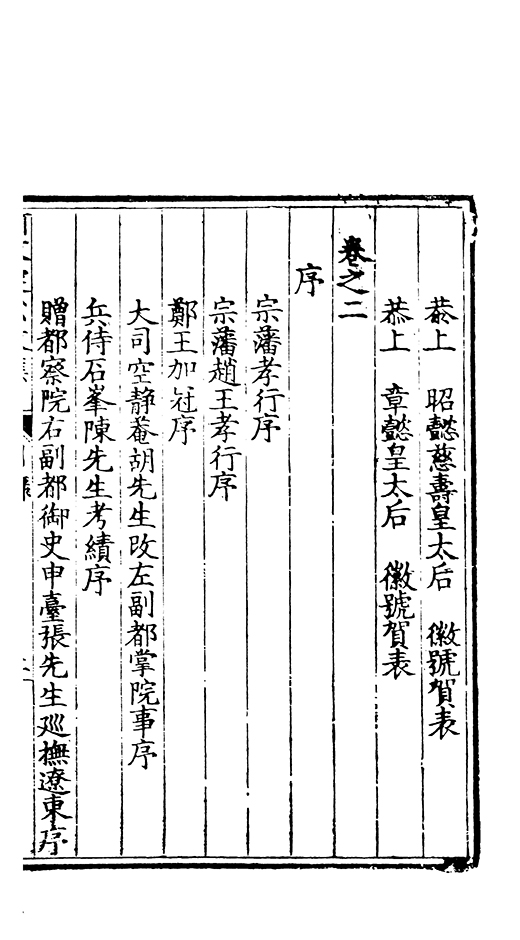 恭上　昭懿慈壽皇太后　徽號賀表
恭上　章懿皇太后　徽號賀表
卷之二
序
宗藩孝行序
宗藩趙王孝行序
鄭王加冠序
大司空静菴胡先生改左副都掌院事序
兵侍石峯陳先生考績序
贈都察院右副都御史申臺張先生廵撫遼東序